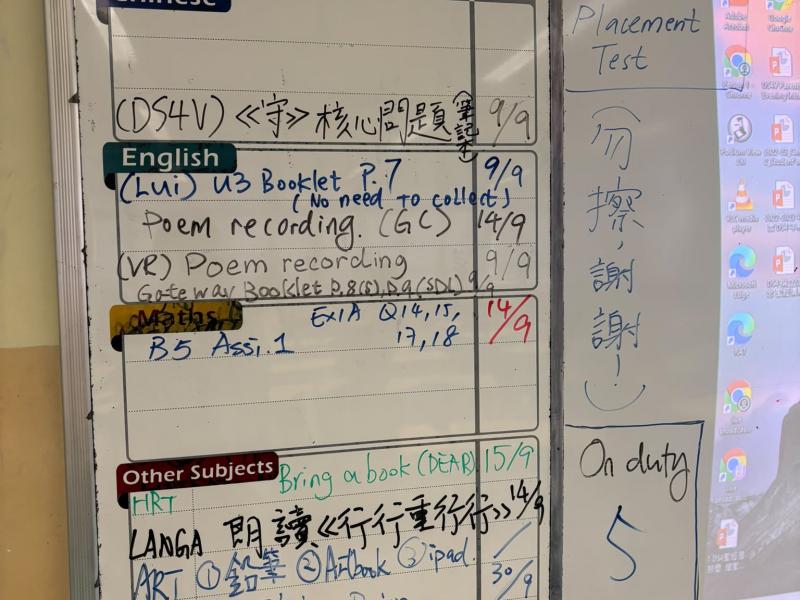 Chinese
(DS4V) 《守》核心問題(筆記本) 9/9
English
(Lui) U3 Booklet P.7 9/9
(No need to collect)
Poem recording. (GC) 14/9
(VR) Poem recording 9/9
Gateway Booklet P.8(B), P.9 (SDL) 9/9
Maths
Ex1A Q14,15, 14/9
B5 Assi.1 17,18
Other Subjects
Bring a book (DEAR) 15/9
HRT
LANGA 朗讀《行行重行行》 14/9
ART ①鉛筆 ②Artbook ③ipad.
30/9
Placement
Test
(勿擦，謝謝！)
On duty
5
Adobe
Acrobat
Google
Chrome
Chrome
VLC media
player
Microsoft
Edge